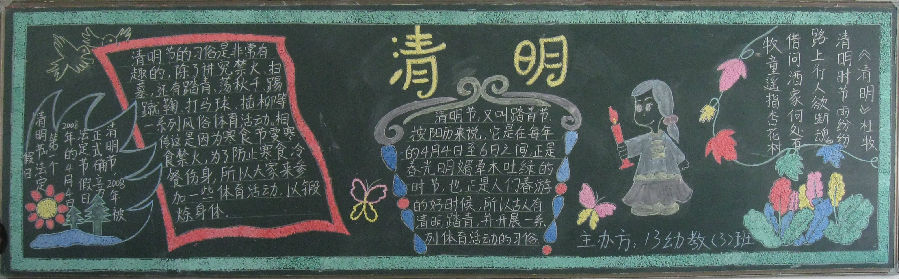 清明
清明节的习俗是非常有
趣的，除了讲究禁火、扫
墓，还有踏青、荡秋千、踢
蹴鞠、打马球、插柳等
一系列风俗体育活动。相
传这是因为寒食节要寒
食禁火，为了防止寒食冷
餐伤身，所以大家来参
加一些体育活动，以锻
炼身体。
清明节，又叫踏青节，
按阳历来说，它是在每年
的4月4日至6日之间，正是
春光明媚草木吐绿的
时节，也正是人们春游
的好时候，所以古人有
清明踏青，并开展一系
列体育活动的习俗。
《清明》杜牧
清明时节雨纷纷
路上行人欲断魂
借问酒家何处有
牧童遥指杏花村
清明节2008年被
正式确
法定节假日
2008年的4月4日
第一个
清明节法定
假日
主办方：13幼教(3)班